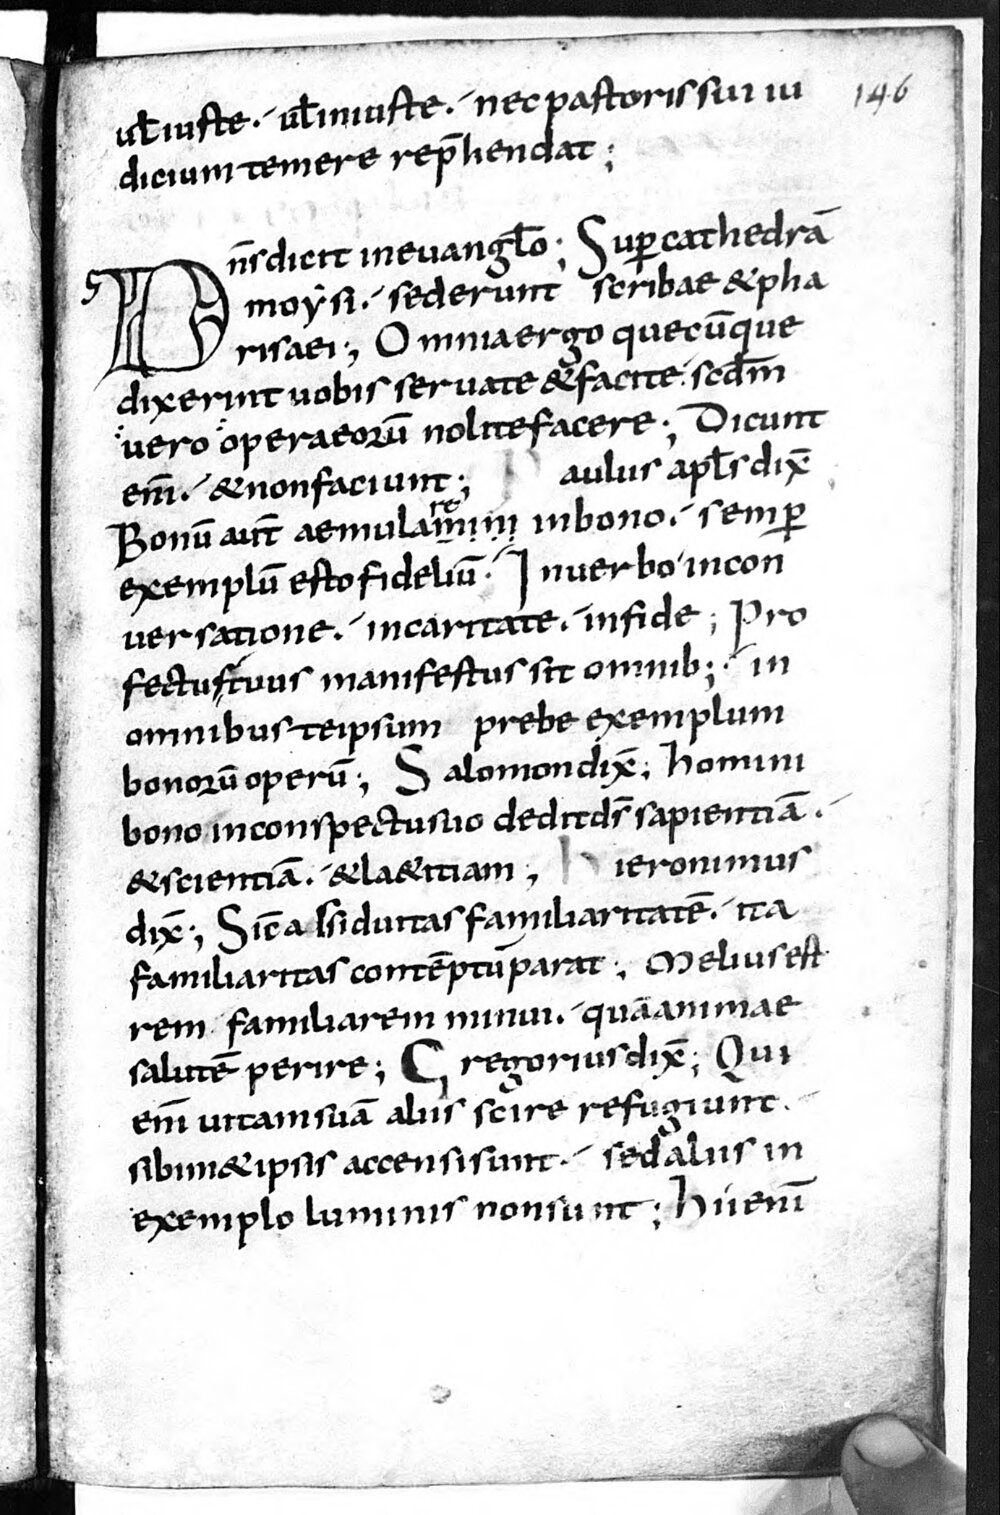 146
ul̄ iuste · ul̄ iniuste · nec pastoris sui iu
dicium temere rep̄hendat ;
D n̄s dicit in euangl̄o ; Sup̲ cathedrā
moẏsi · sederunt scribae & pha
risaei ; Omnia ergo quecūque
dixerint uobis seruate & facite · scd̄m
uero opera eorū nolite facere ; Dicunt
em̄ · & non faciunt ; P aulus apl̄s dix̄
Bonū aut̄ aemulamini re in bono · semp̲
exemplū esto fideliū · In uerbo in con
uersatione · in caritate · in fide ; Pro
fectus tuus manifestus sit omnib; · in
omnibus te ipsum prebe exemplum
bonorū operū ; Salomon dix̄ ; homini
bono in conspectu suo dedit ds̄ sapientiā ·
& scientiā · & la&itiam ; h ieronimus
dix̄ ; Sic̄ assiduitas familiaritatē · ita
familiaritas contēptū parat ; Melius est
rem familiarem minui · quā animae
salutē perire ; Gregorius dix̄ ; Qui
em̄ uitam suā aliis scire refugiunt ·
sibim& ipsis accensi sunt · sed aliis in
exemplo luminis non sunt ; hii enī